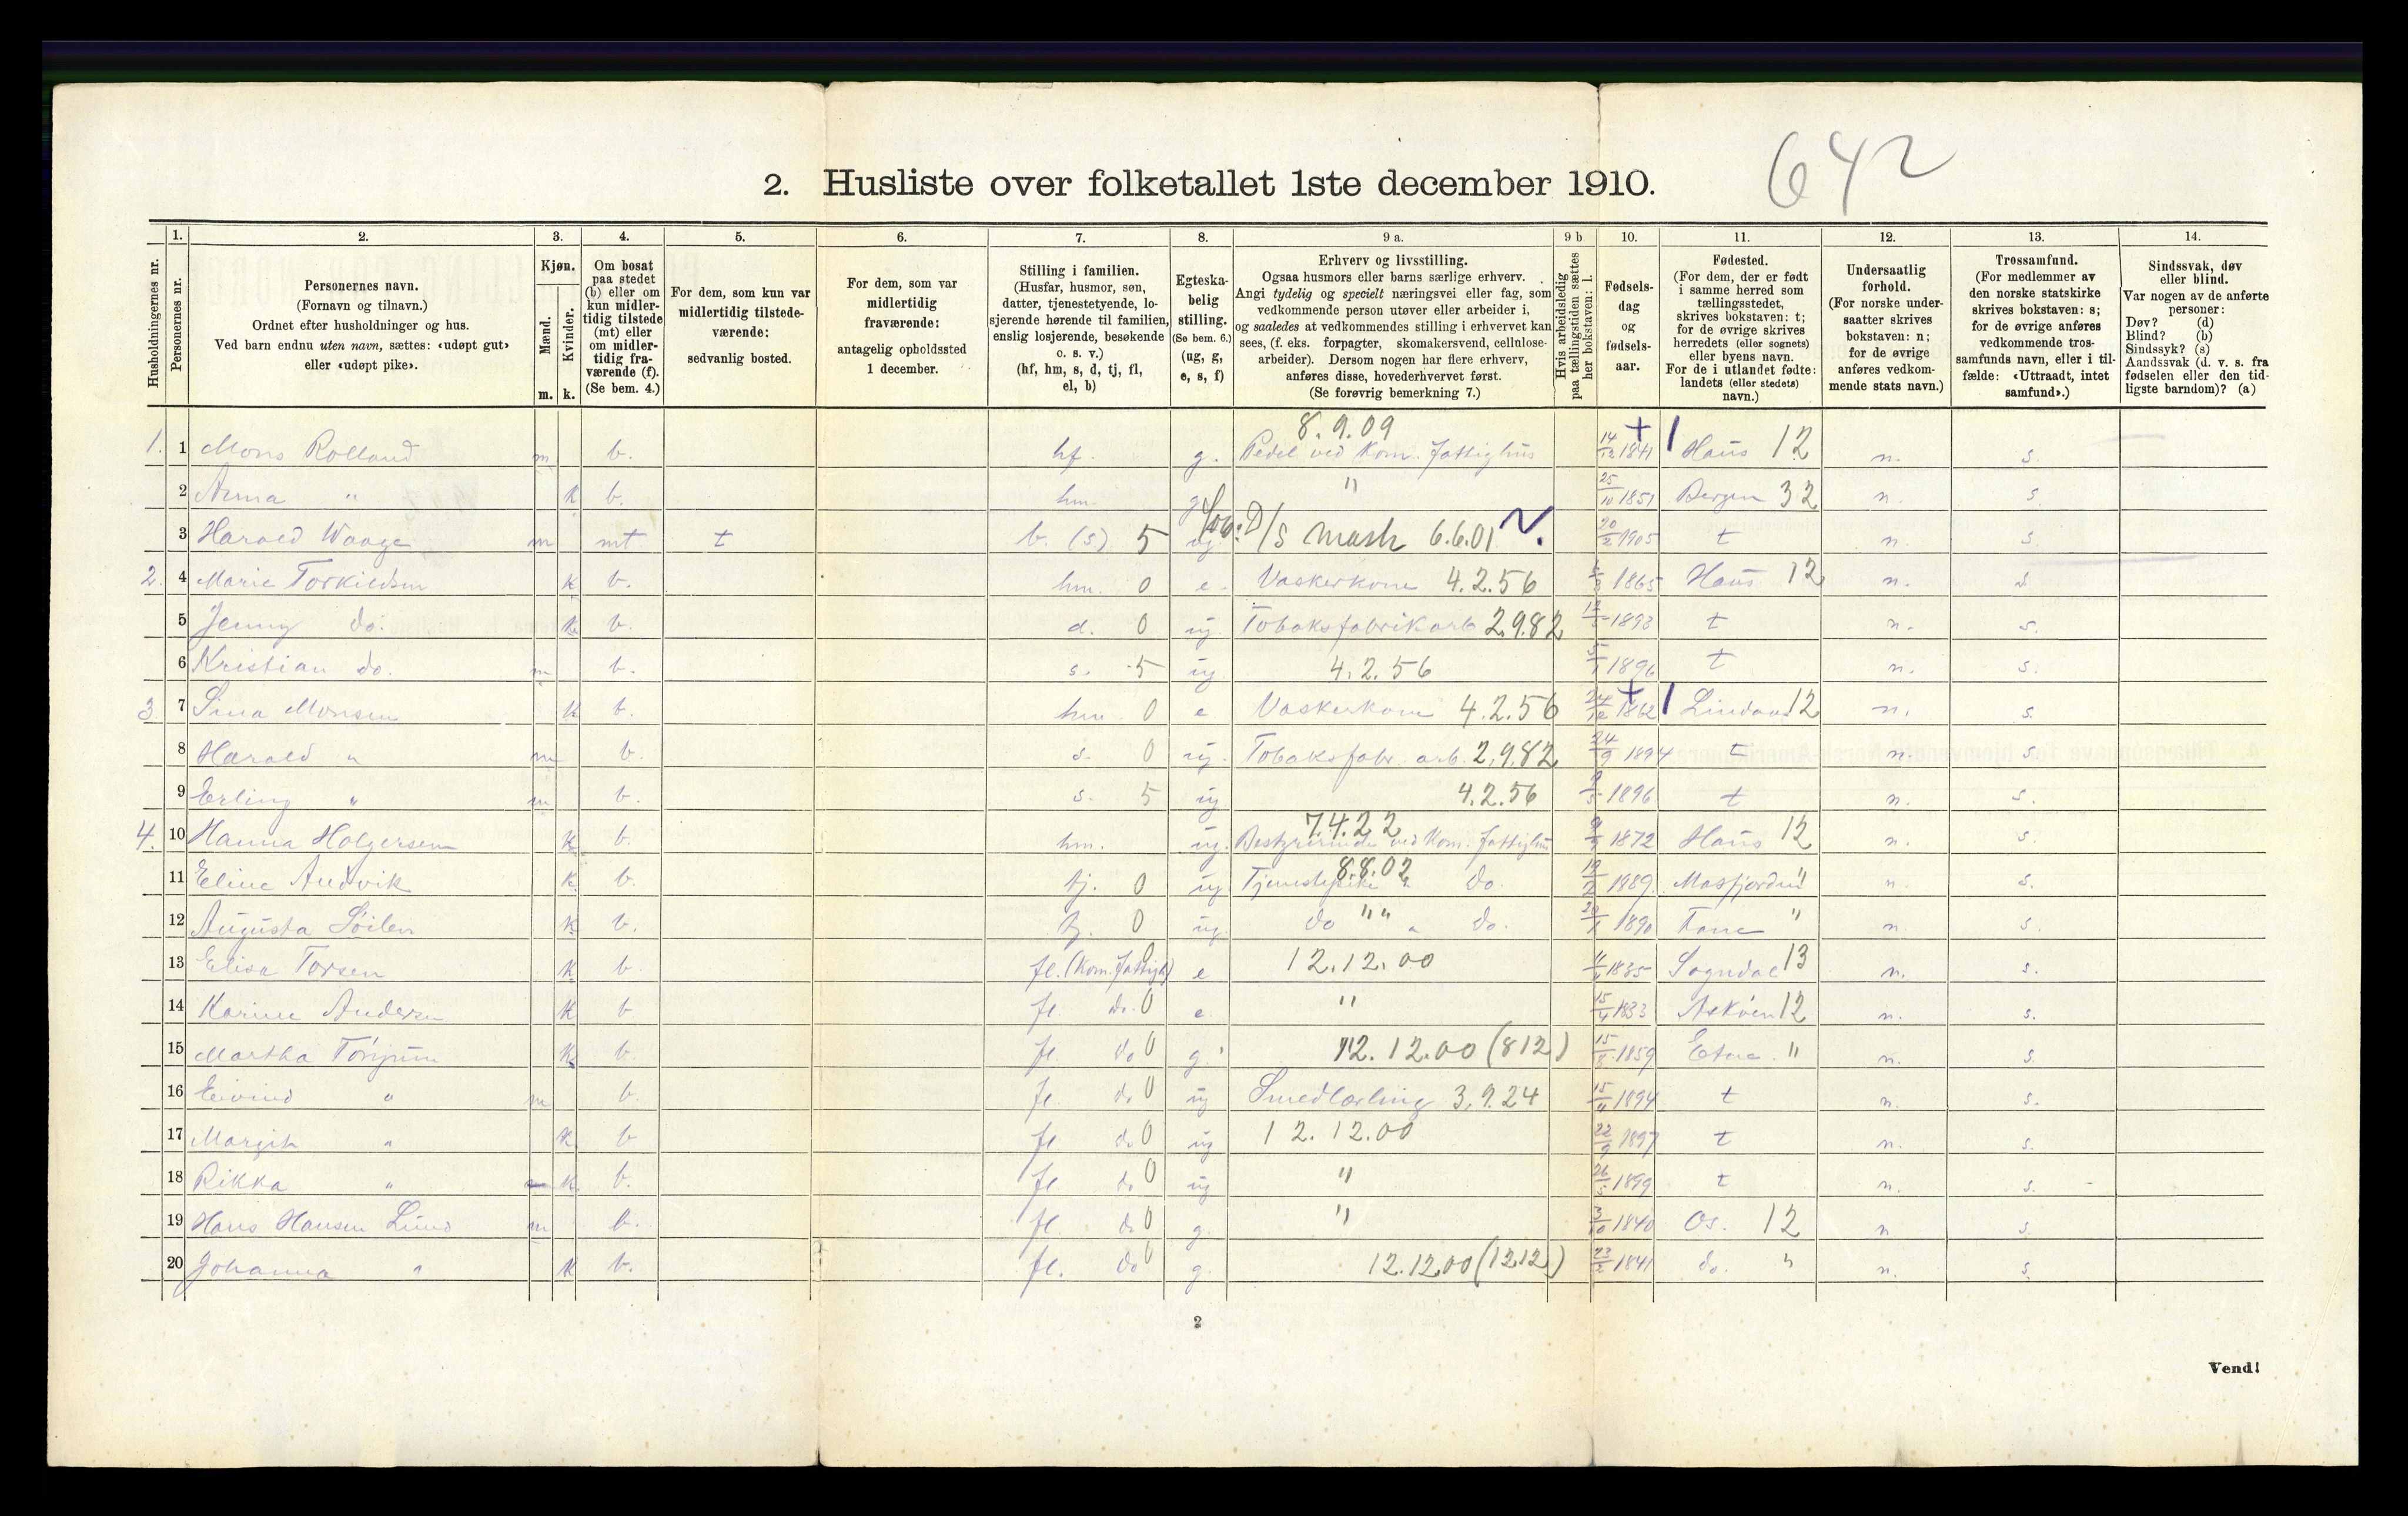 642
2. Husliste over folketallet 1ste december 1910.
Husholdningernes nr.
1. Personernes nr.
2. Personernes navn. (Fornavn og tilnavn.) Ordnet efter husholdninger og hus. Ved barn endnu uten navn, sættes: «udøpt gut» eller «udøpt pike».
3. Kjøn. Mænd. m. Kvinder. k.
4. Om bosat paa stedet (b) eller om kun midlertidig tilstede (mt) eller om midlertidig fraværende (f). (Se bem. 4.)
5. For dem, som kun var midlertidig tilstedeværende: sedvanlig bosted.
6. For dem, som var midlertidig fraværende: antagelig opholdssted 1 december.
7. Stilling i familien. (Husfar, husmor, søn, datter, tjenestetyende, losjerende hørende til familien, enslig losjerende, besøkende o. s. v.) (hf, hm, s, d, tj, fl, el, b)
8. Egteskabelig stilling. (Se bem. 6.) (ug, g, e, s, f)
9 a. Erhverv og livsstilling. Ogsaa husmors eller barns særlige erhverv. Angi tydelig og specielt næringsvei eller fag, som vedkommende person utøver eller arbeider i, og saaledes at vedkommendes stilling i erhvervet kan sees, (f. eks. forpagter, skomakersvend, cellulosearbeider). Dersom nogen har flere erhverv, anføres disse, hovederhvervet først. (Se forøvrig bemerkning 7.)
9 b Hvis arbeidsledig paa tællingstiden sættes her bokstaven: l.
10. Fødselsdag og fødselsaar.
11. Fødested. (For dem, der er født i samme herred som tællingsstedet, skrives bokstaven: t; for de øvrige skrives herredets (eller sognets) eller byens navn. For de i utlandet fødte: landets (eller stedets) navn.)
12. Undersaatlig forhold. (For norske undersaatter skrives bokstaven: n; for de øvrige anføres vedkommende stats navn.)
13. Trossamfund. (For medlemmer av den norske statskirke skrives bokstaven: s; for de øvrige anføres vedkommende trossamfunds navn, eller i tilfælde: «Uttraadt, intet samfund».)
14. Sindssvak, døv eller blind. Var nogen av de anførte personer: Døv? (d) Blind? (b) Sindssyk? (s) Aandssvak (d. v. s. fra fødselen eller den tidligste barndom)? (a)
1. 1 Mons Rolland m b. hf. g. 8.9.09 Pedel ved Kom. Fattighus 14/12 1841 + Haus 12 n. s.
2 Anna " k b. hm. g " 25/10 1851 Bergen 32 n. s
3 Harald Waage m mt t b. (s) 5 ug D/S mask 6.6.01 20/2 1905 t n. s.
2. 4 Marie Torkildsen k b. hm. 0 e. Vaskerkone 4.2.56 1865 Haus 12 n. s
5 Jenny do. k b. d. 0 ug. Tobaksfabrikarb 2.9.82 1893 t n. s.
6 Kristian do. m b. s. 5 ug 4.2.56 5/1 1896 t n. s.
3 7 Sina Monsen k b. hm. 0 e Vaskerkone 4.2.56 24/12 1862 + Lindaas 12 n. s.
8 Harald " m b. s. 0 ug. Tobaksfabr. arb. 2.9.82 24/9 1894 t n. s
9 Erling " m b. s. 5 ug 4.2.56 1896 t n. s.
4. 10 Hanna Holgersen k b. hm. ug. 7.4.22 Bestyrerinde ved Kom. Fattighus 1872 Haus 12 n. s.
11 Eline Andvik k b. tj. 0 ug 8.8.02 Tjenestepike " do. 1889 Masfjorden " n. s.
12 Augusta Söilen k b. tj. 0 ug. do " " " do. 1890 Fane " n s.
13 Elisa Torsen k b fl. (Kom. Fattigh) 0 e 12.12.00 1835 Sogndal 13 n. s.
14 Karine Andersen k b fl. do. 0 e. " 15/4 1833 Asköen 12 n. s.
15 Martha k b. fl. do 0 g. 12.12.00 (812) 1859 Etne " n. s.
16 Eivind " m b. fl. do 0 ug Smedlærling 3.9.24 15/11 1894 t n. s.
17 Margit " k b fl do 0 ug 12.12.00 22/9 1897 t n. s.
18 Rikka " k. b. fl do 0 ug " 26/5 1899 t n. s.
19 Hans Hansen Lund m b. fl. do 0 g. " 3/10 1840 Os. 12 n s.
20 Johanna " k b. fl. do 0 g. 12.12.00 (1212) 23/2 1841 do. " n. s
2
Vend!